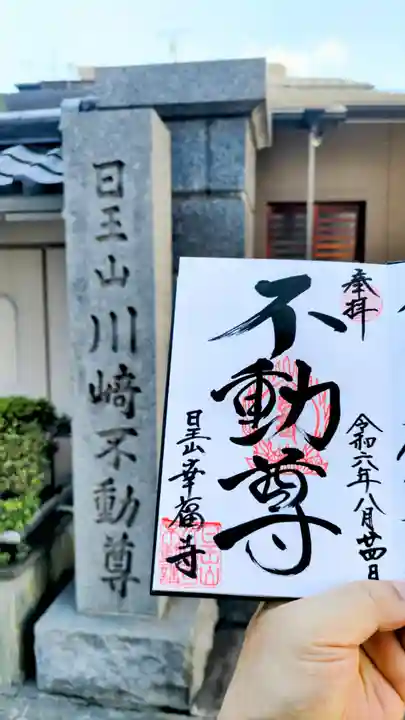 日王山川崎不動尊
奉拝
不動尊
令和六年八月廿四日
日王山幸福寺